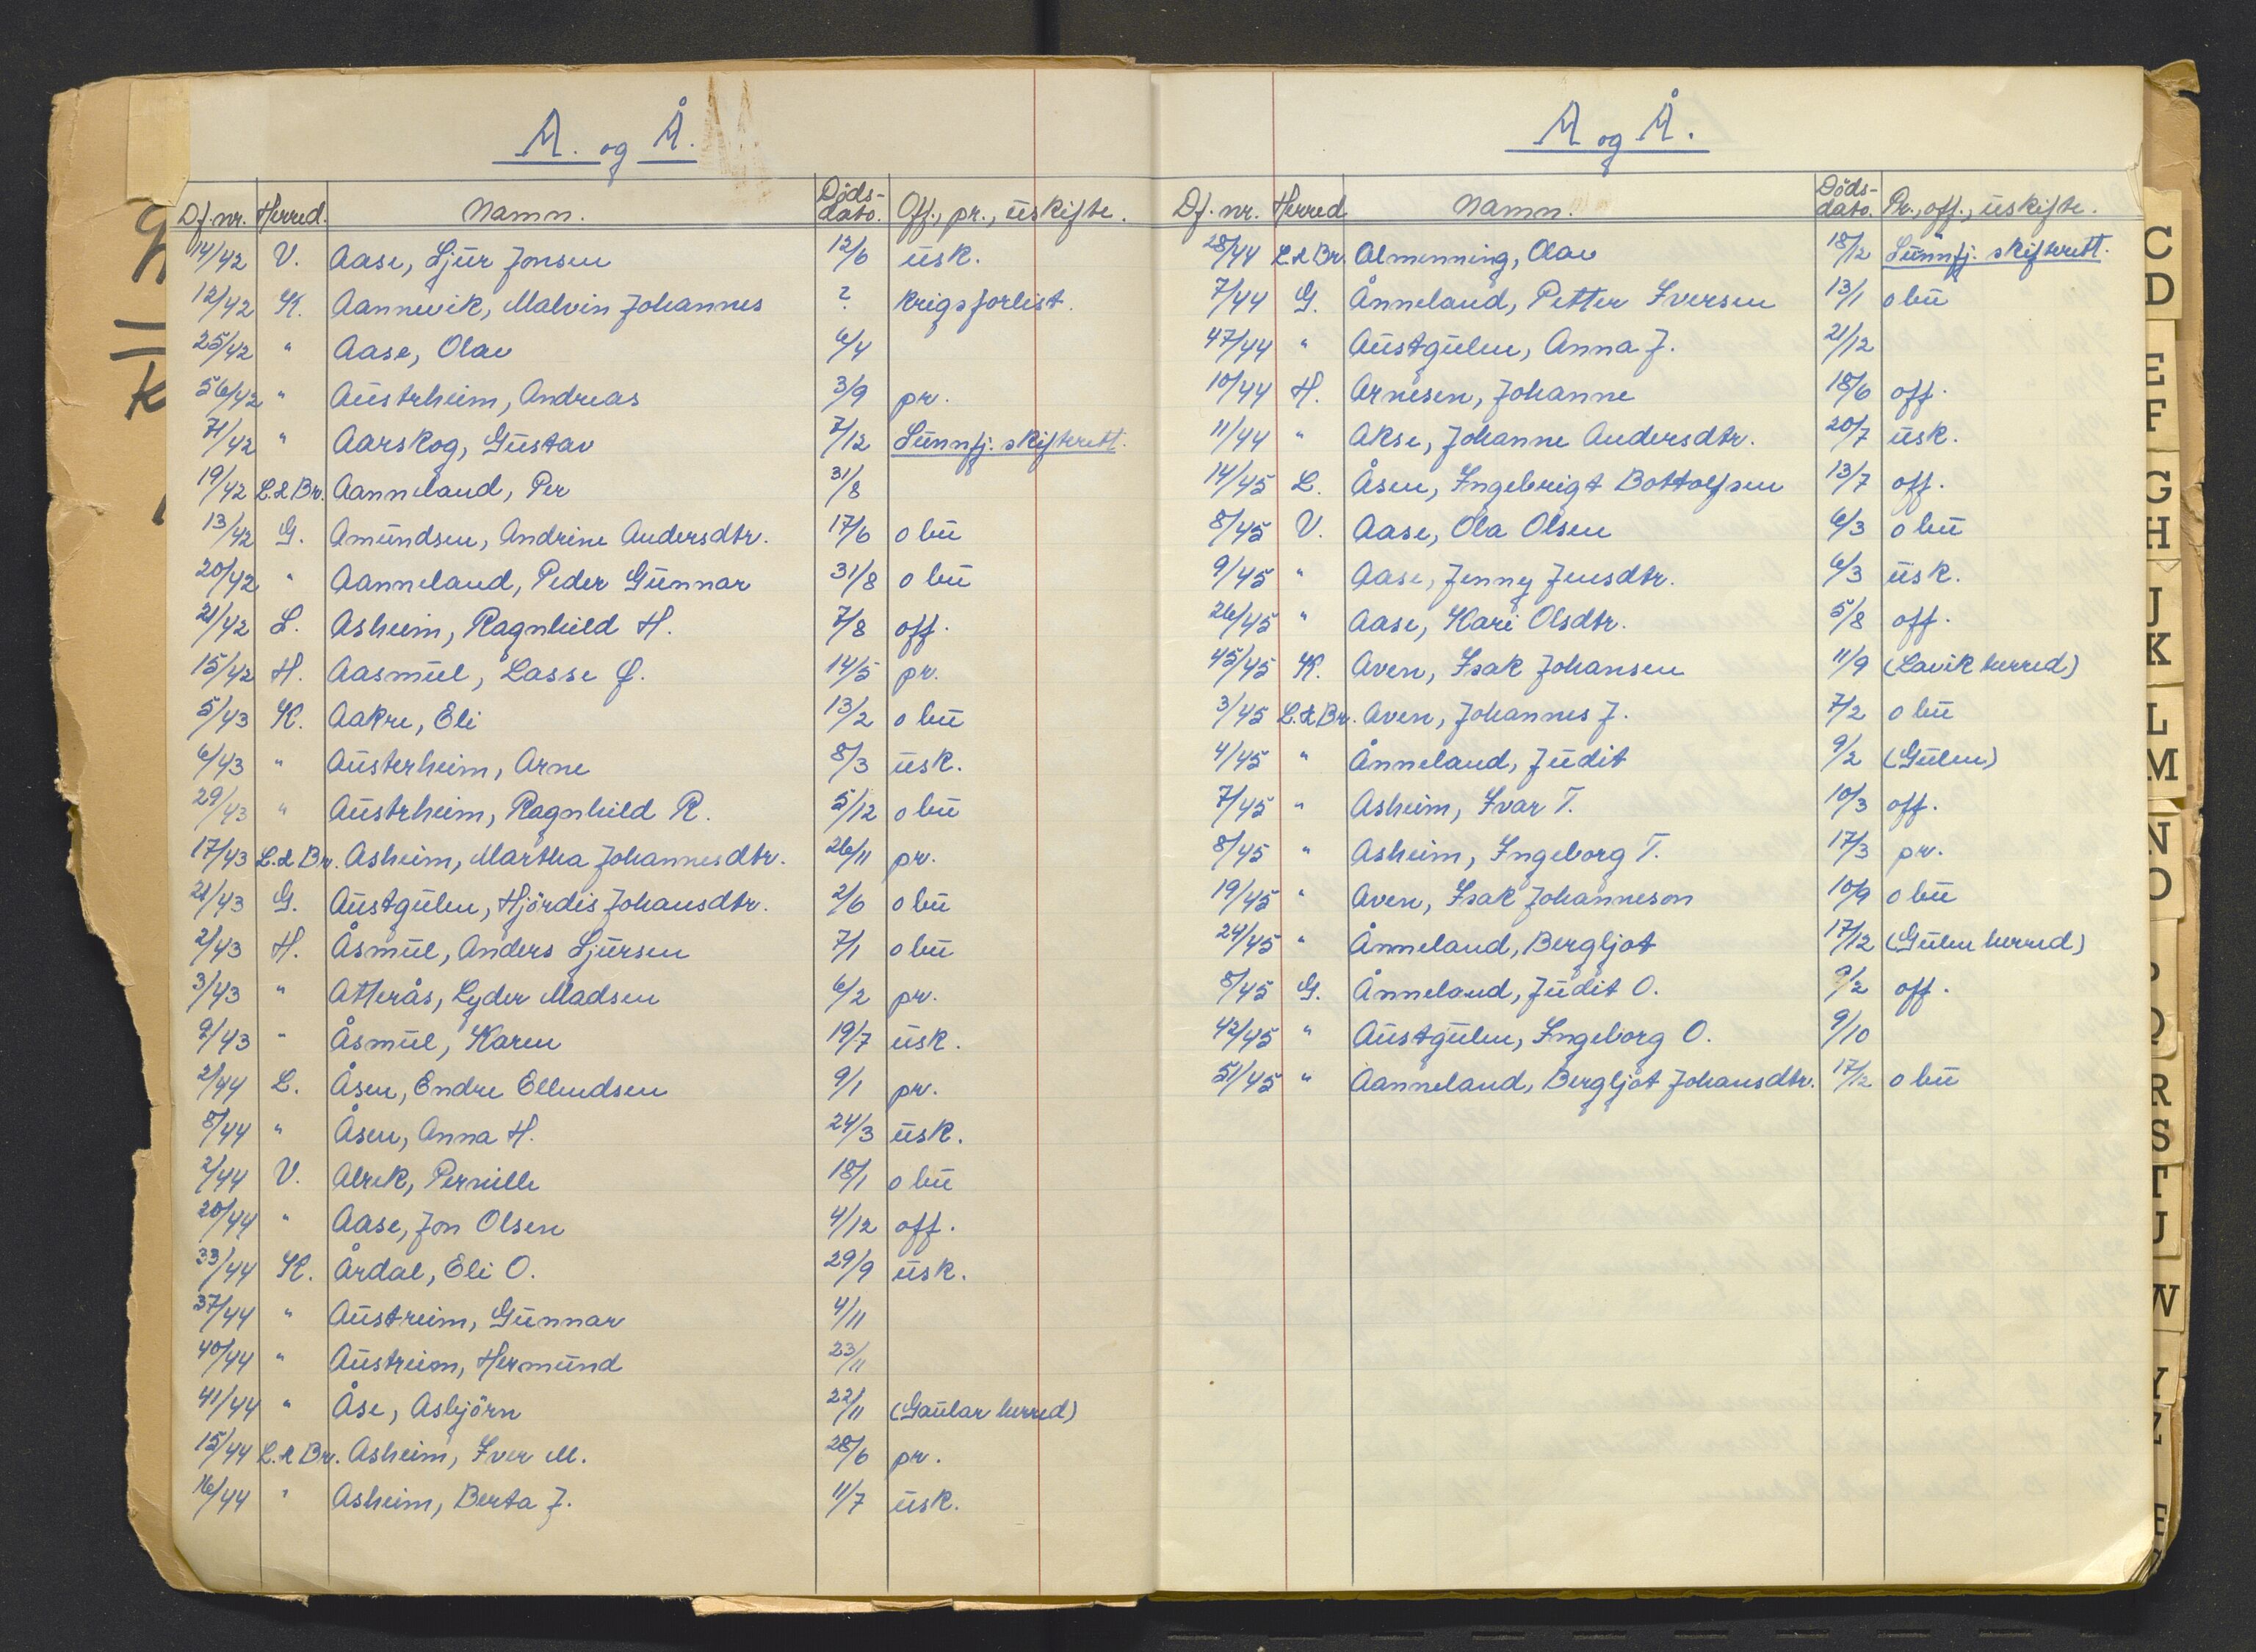 A. og Å.
Df.nr. Herred. Namn. Döds-dato. Off., pr., uskifte.
14/42 V. Aase, Sjur Jonsen 12/6 usk.
12/42 K. Aannevik, Malvin Johannes ? krigsforlist.
25/42 " Aase, Olav 6/4
56/42 " Austrheim, Andreas 3/9 pr.
71/42 " Aarskog, Gustav 7/12 Sunnfj. skifterett.
19/42 L.&Br. Aanneland, Per 31/8
13/42 G. Amundsen, Andrine Andersdtr. 17/6 o bu
20/42 " Aanneland, Peder Gunnar 31/8 o bu
21/42 L. Asheim, Ragnhild H. 7/8 off.
15/42 H. Aasmul, Lasse 14/5 pr.
5/43 K. Aakre, Eli 13/2 o bu
6/43 " Austerheim, Arne 8/3 usk.
29/43 " Austrheim, Ragnhild R. 5/12 o bu
17/43 L.&Br. Asheim, Martha Johannesdtr. 26/11 pr.
21/43 G. Austgulen, Hjördis Johansdtr. 2/6 o bu
2/43 H. Åsmul, Anders Sjursen 7/1 o bu
3/43 " Atterås, Lyder Madsen 6/2 pr.
9/43 " Åsmul, Karen 19/7 usk.
2/44 L. Åsen, Endre Ellendsen 9/1 pr.
8/44 " Åsen, Anna H. 24/3 usk.
2/44 V. Alrek, Pernille 18/1 o bu
20/44 " Aase, Jon Olsen 4/12 off.
33/44 K. Årdal, Eli O. 29/9 usk.
37/44 " Austreim, Gunnar 4/11
40/44 " Austreim, Hermund 23/11
41/44 " Åse, Asbjörn 22/11 (Gaular herred)
15/44 L.&Br. Asheim, Iver M. 28/6 pr.
16/44 " Asheim, Berta J. 11/7 usk.
A og Å.
Df. nr. Herred Namn. Döds-dato. Pr., off., uskifte.
28/44 L&Br. Almenning, Olav 18/12 Sunnfj. skifterett.
7/44 G. Ånneland, Petter Iversen 13/1 o bu
47/44 " Austgulen, Anna J. 21/12
10/44 H. Arnesen, Johanne 18/6 off.
11/44 " Akse, Johanne Andersdtr. 20/7 usk.
14/45 L. Åsen, Ingebrigt Bottolfsen 13/7 off.
8/45 V. Aase, Ola Olsen 6/3 o bu
9/45 " Aase, Jenny Jensdtr. 6/3 usk.
26/45 " Aase, Kari Olsdtr. 5/8 off.
45/45 K. Aven, Isak Johansen 11/9 (Lavik herred)
3/45 L.&Br. Aven, Johannes J. 7/2 o bu
4/45 " Ånneland, Judit 9/2 (Gulen)
7/45 " Asheim, Ivar T. 10/3 off.
8/45 " Asheim, Ingeborg T. 17/3 pr.
19/45 " Aven, Isak Johanneson 10/9 o bu
24/45 " Ånneland, Bergljot 17/12 (Gulen herred)
8/45 G. Ånneland, Judit O. 9/2 off.
42/45 " Austgulen, Ingeborg O. 9/10
51/45 " Aanneland, Bergljot Johansdtr. 17/12 o bu
C
D
E
F
G
H
J
K
L
M
N
O
Q
R
S